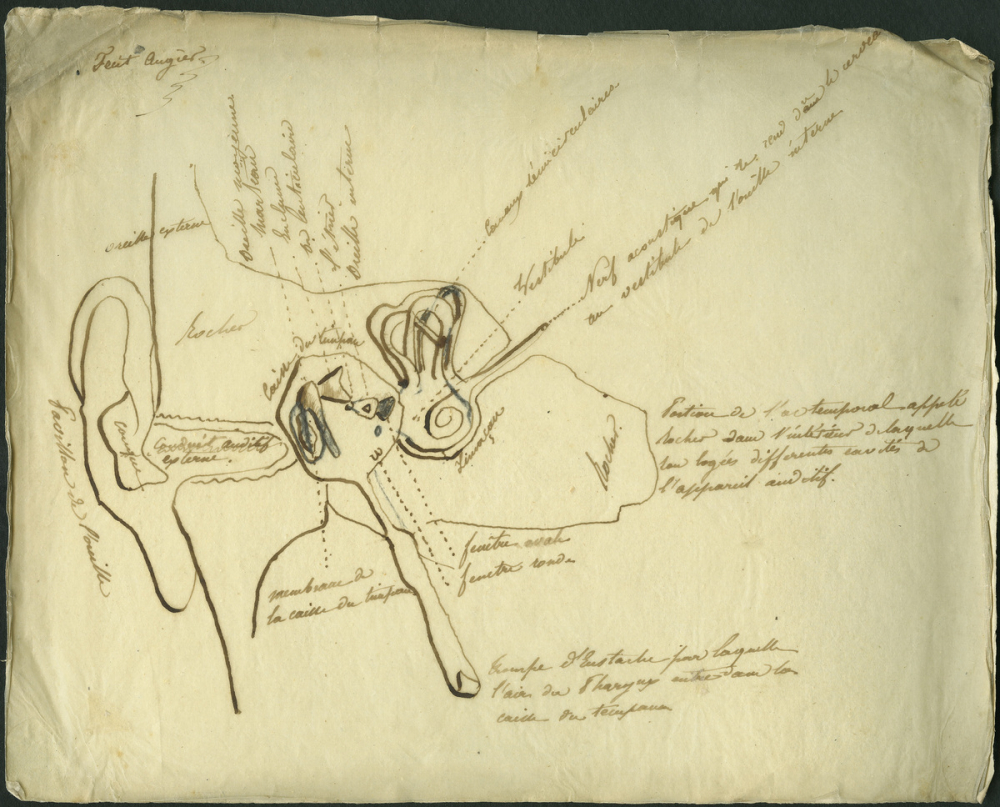 oreille externe
oreille moyenne
marteau
enclume
os lenticulaire
l'étrier
oreille interne
Canaux sémicirculaires
Vestibule
Nerf acoustique qui se rend dans le cerveau
au vestibule de l'oreille interne
Rocher
Caisse du timpan
Pavillon de l'oreille
conque
Conduit auditif
externe.
Limaçon
Rocher.
Portion de l'os temporal appelé
rocher dans l'intérieur de laquelle
son logées differentes cavités de
l'appareil auditif.
fenêtre ovale
fenetre ronde
membrane de
la caisse du timpan
trompe d'Eustache par laquelle
l'air du Pharynx entre dans la
caisse du timpan